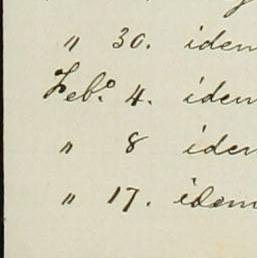 " 30. idem
Feb.º 4. idem
" 8 idem
" 17. idem